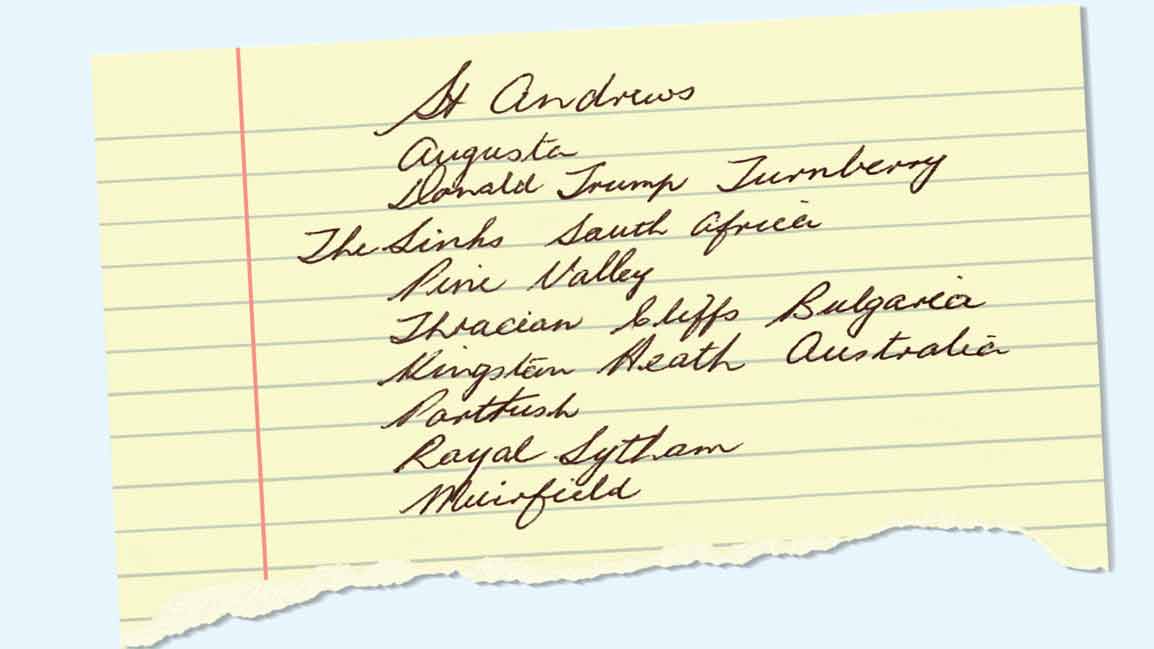 St Andrews
Augusta
Donald Trump Turnberry
The Links South Africa
Pine Valley
Thracian Cliffs Bulgaria
Kingston Heath Australia
Portrush
Royal Lytham
Muirfield